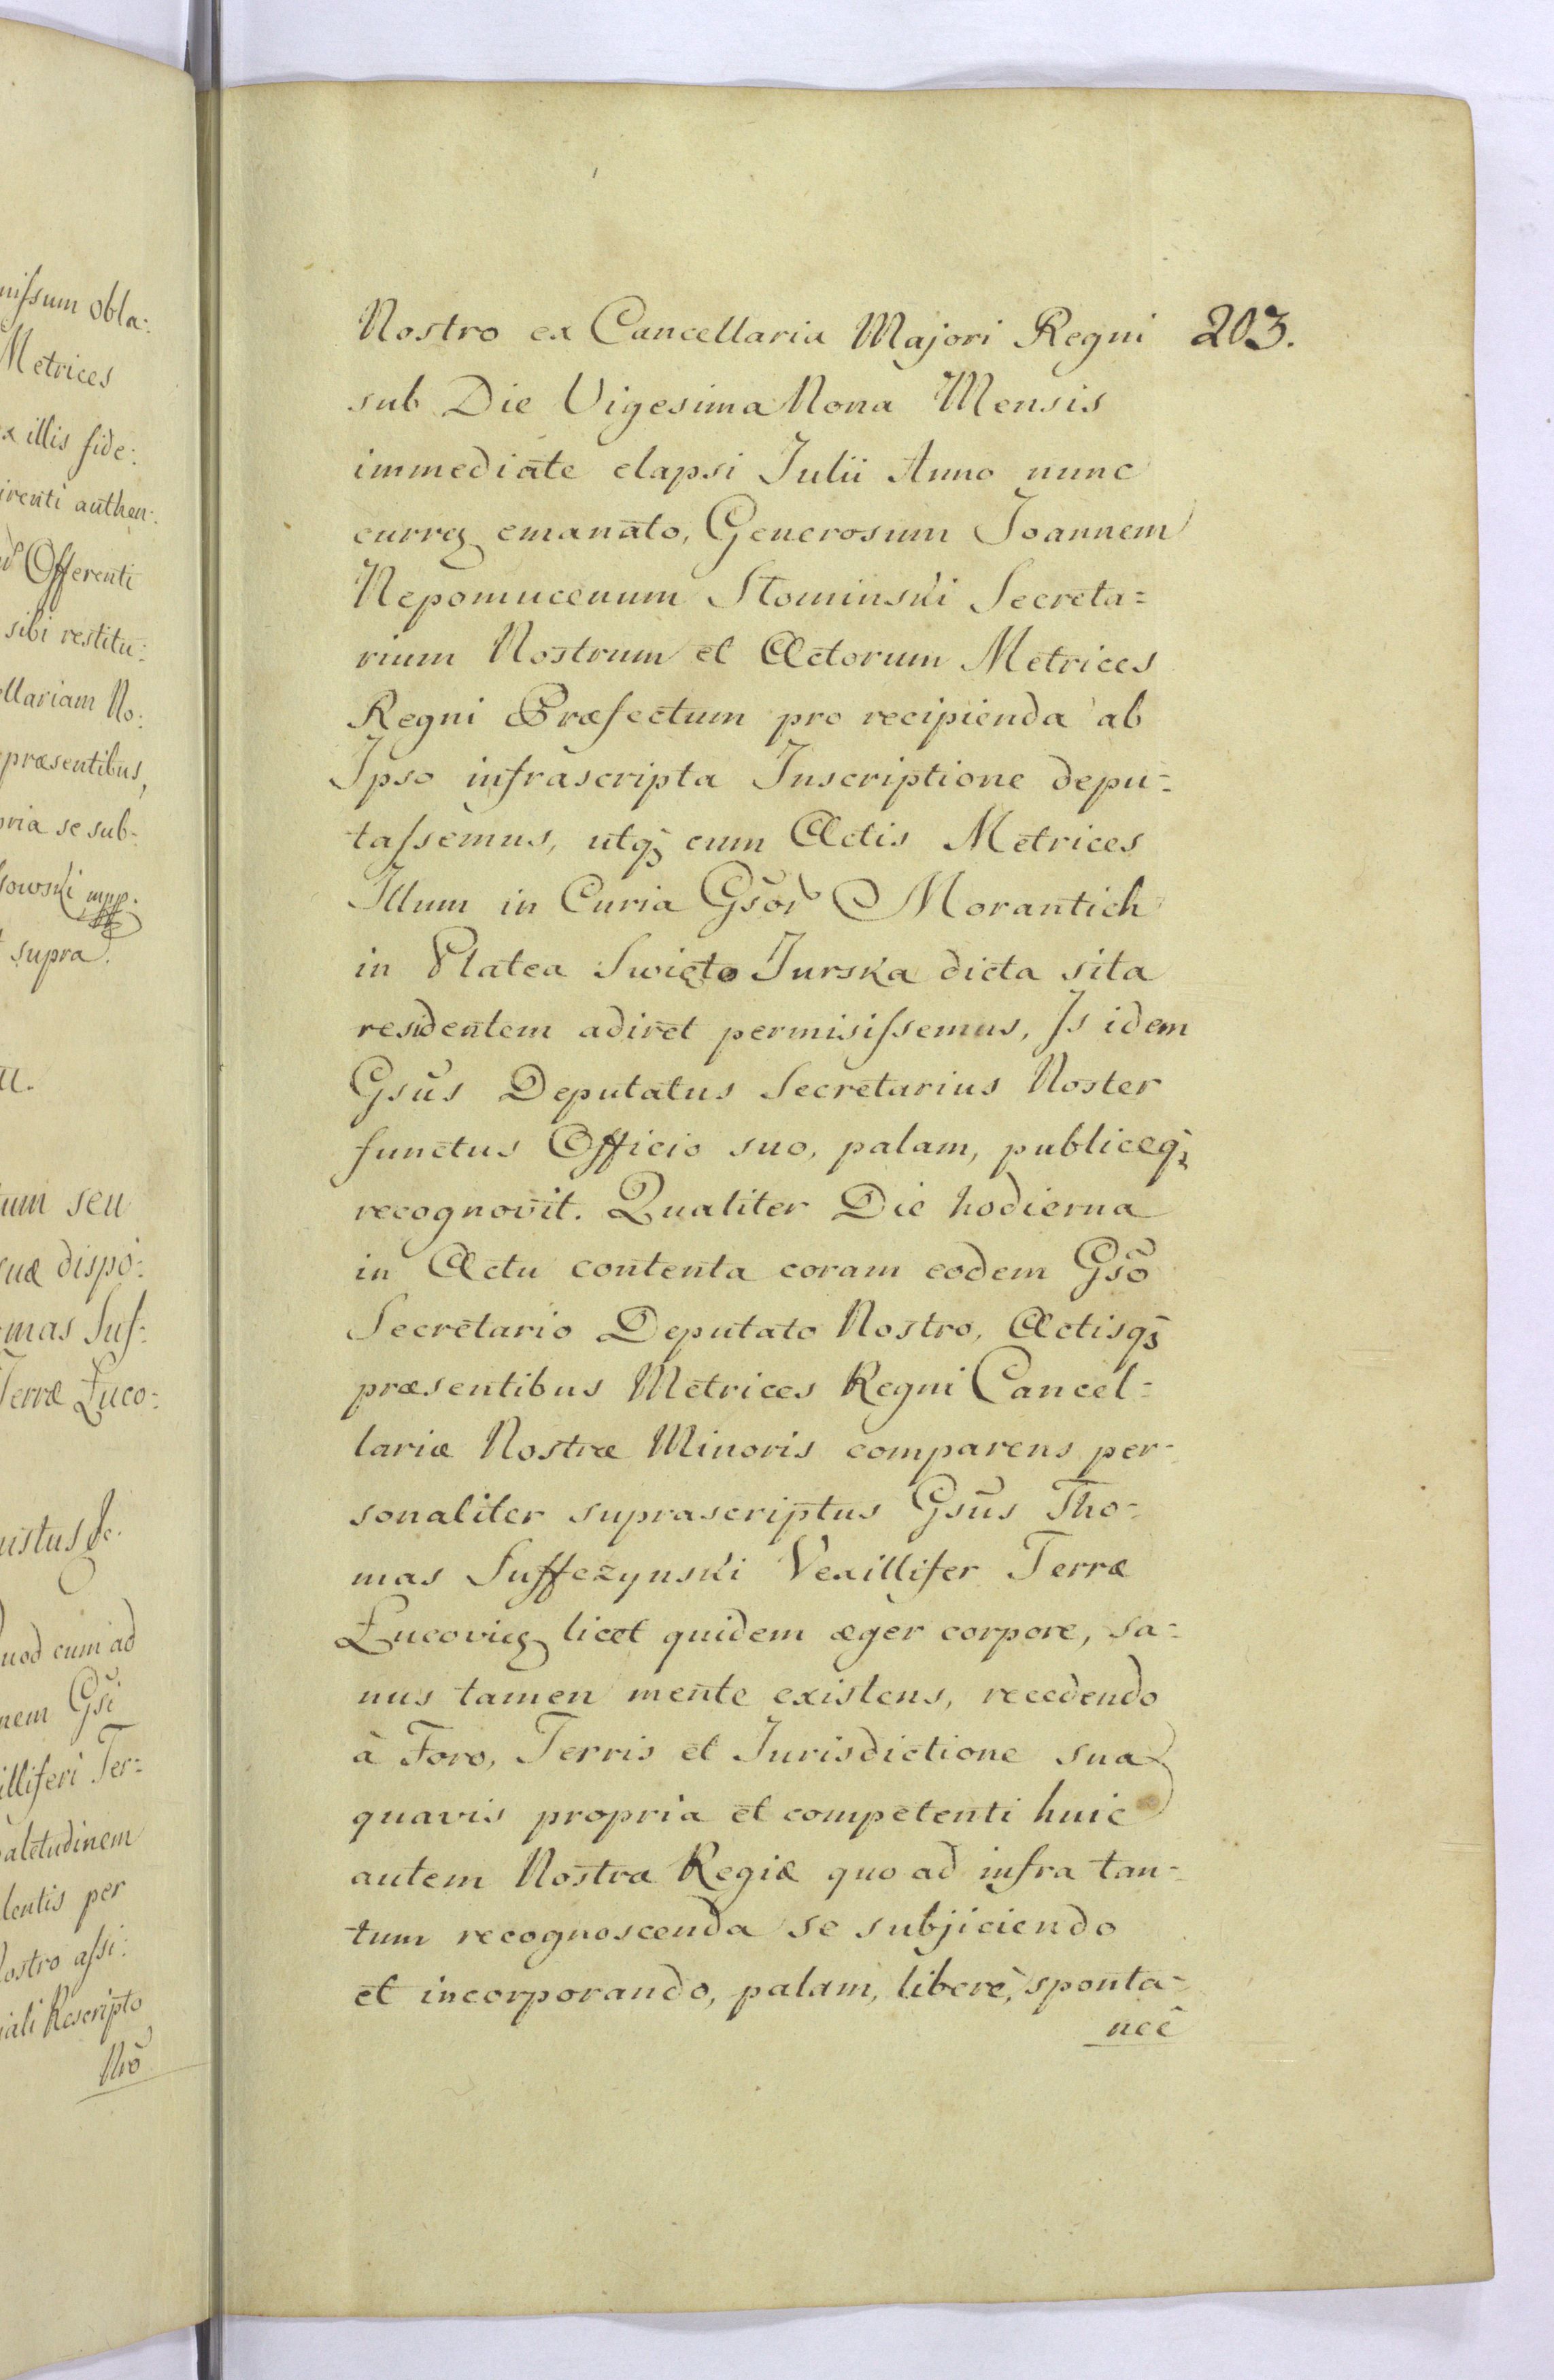 nissum obla:
Metrices
illis fide:
irenti authen:
Offerenti
sibi restitu:
ellariam No:
præsentibus,
pria se sub-
sowski mpp.
supra.
um seu
suæ dispo:
mas Suf:
Terræ Łuco:
ustus &c.
uod cum ad
nem Gsi
illiferi Ter:
aletudinem
lentis per
ostro assi:
iali Rescripto
Nrõ
203.
Nostro ex Cancellaria Majori Regni
sub Die Vigesima Nona Mensis
immediate elapsi Julii Anno nunc
curreȝ emanato, Generosum Joannem
Nepomucenum Słominski Secreta=
rium Nostrum et Actorum Metrices
Regni Præfectum pro recipienda ab
Ipso infrascripta Inscriptione depu=
tassemus, utq̃ʒ cum Actis Metrices
Illum in Curia Gsõr Morantich
in Platea Swięto Jurska dicta sita
residentem adiret permisissemus, Is idem
Gsũs Deputatus Secretarius Noster
functus Officio suo, palam, publiceq̃ʒ
recognovit. Qualiter Die hodierna
in Actu contenta coram eodem Gsõ
Secretario Deputato Nostro, Actisq̃ʒ
præsentibus Metrices Regni Cancel=
lariæ Nostræ Minoris comparens per-
sonaliter suprascriptus Gsũs Tho-
mas Suffczynski Vexillifer Terræ
Łucovieȝ licet quidem æger corpore, sa=
nus tamen mente existens, recedendo
à Foro, Terris et Jurisdictione sua
quavis propria et competenti huic
autem Nostra Regiæ quo ad infra tan-
tum recognoscenda se subjiciendo
et incorporando, palam, liberè, sponta-
neè